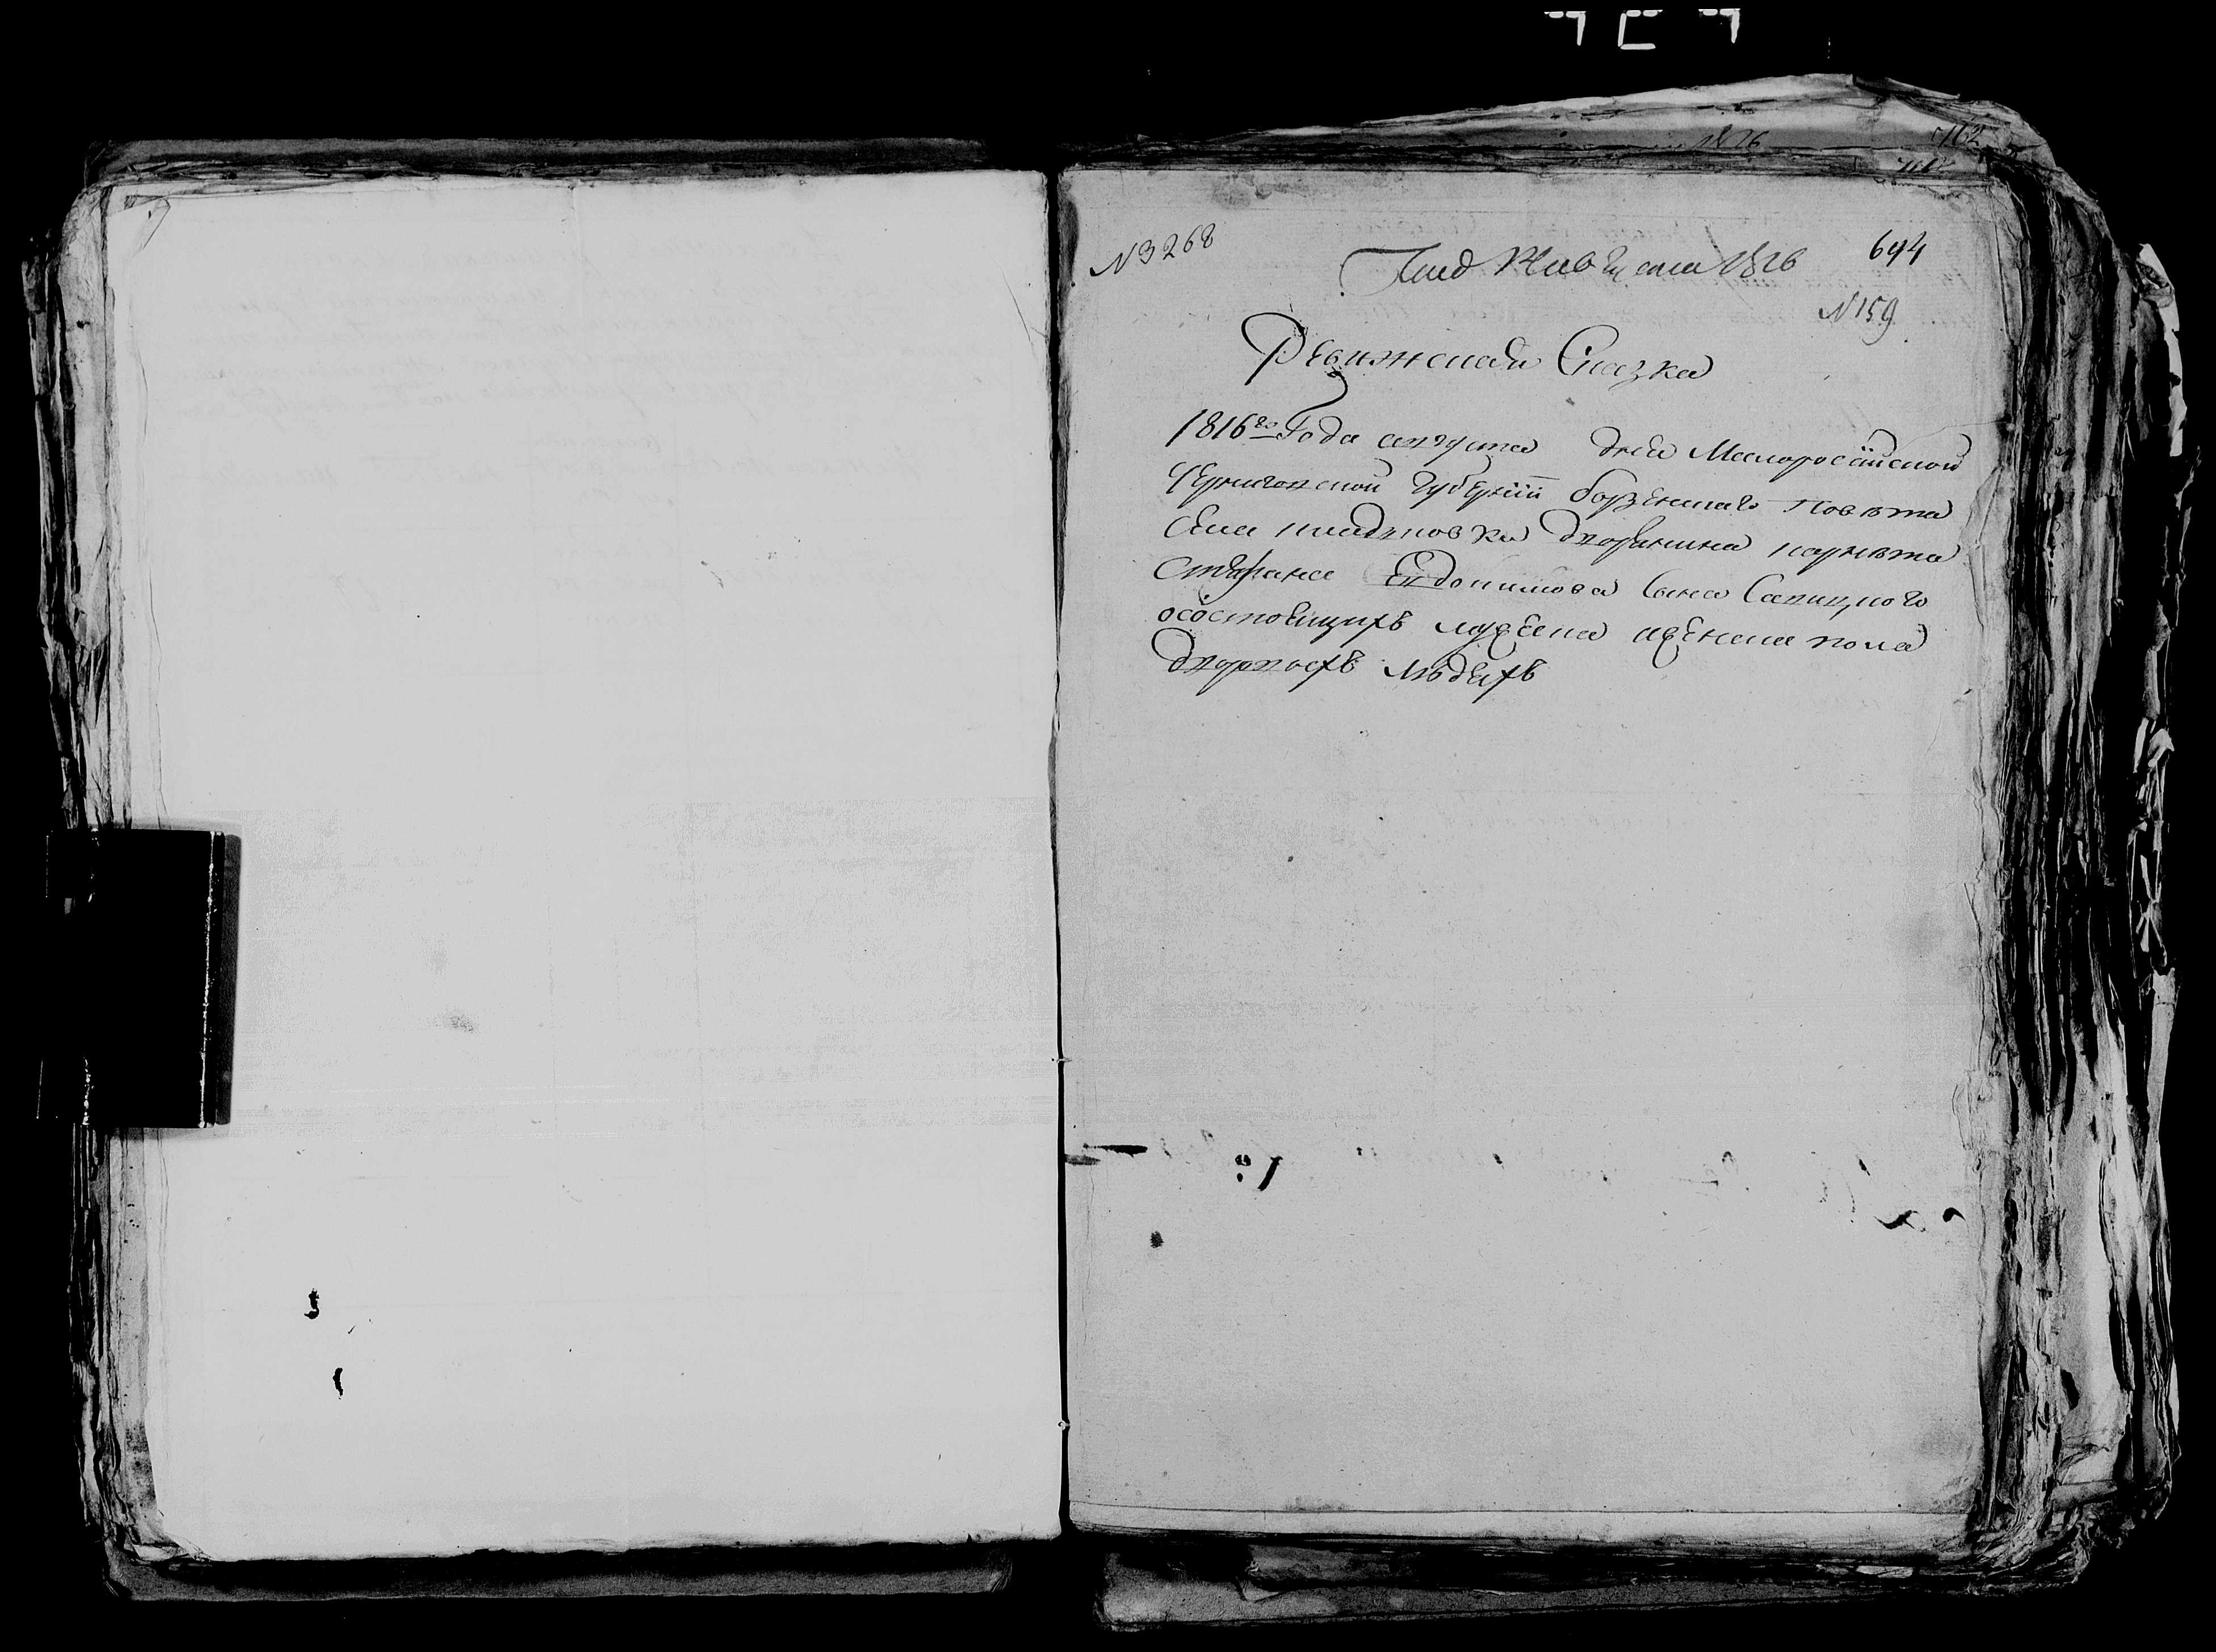 N 3268
694
1816
N 159
Ревижская Сказка
1816го Года августа дня Малоросийской
Черниговской губернии борзенского повѣта
села дворянина корнѣта
Стефана Евдокимова сына
осостоящихъ мужеска иженска пола
дворовыхъ людехъ